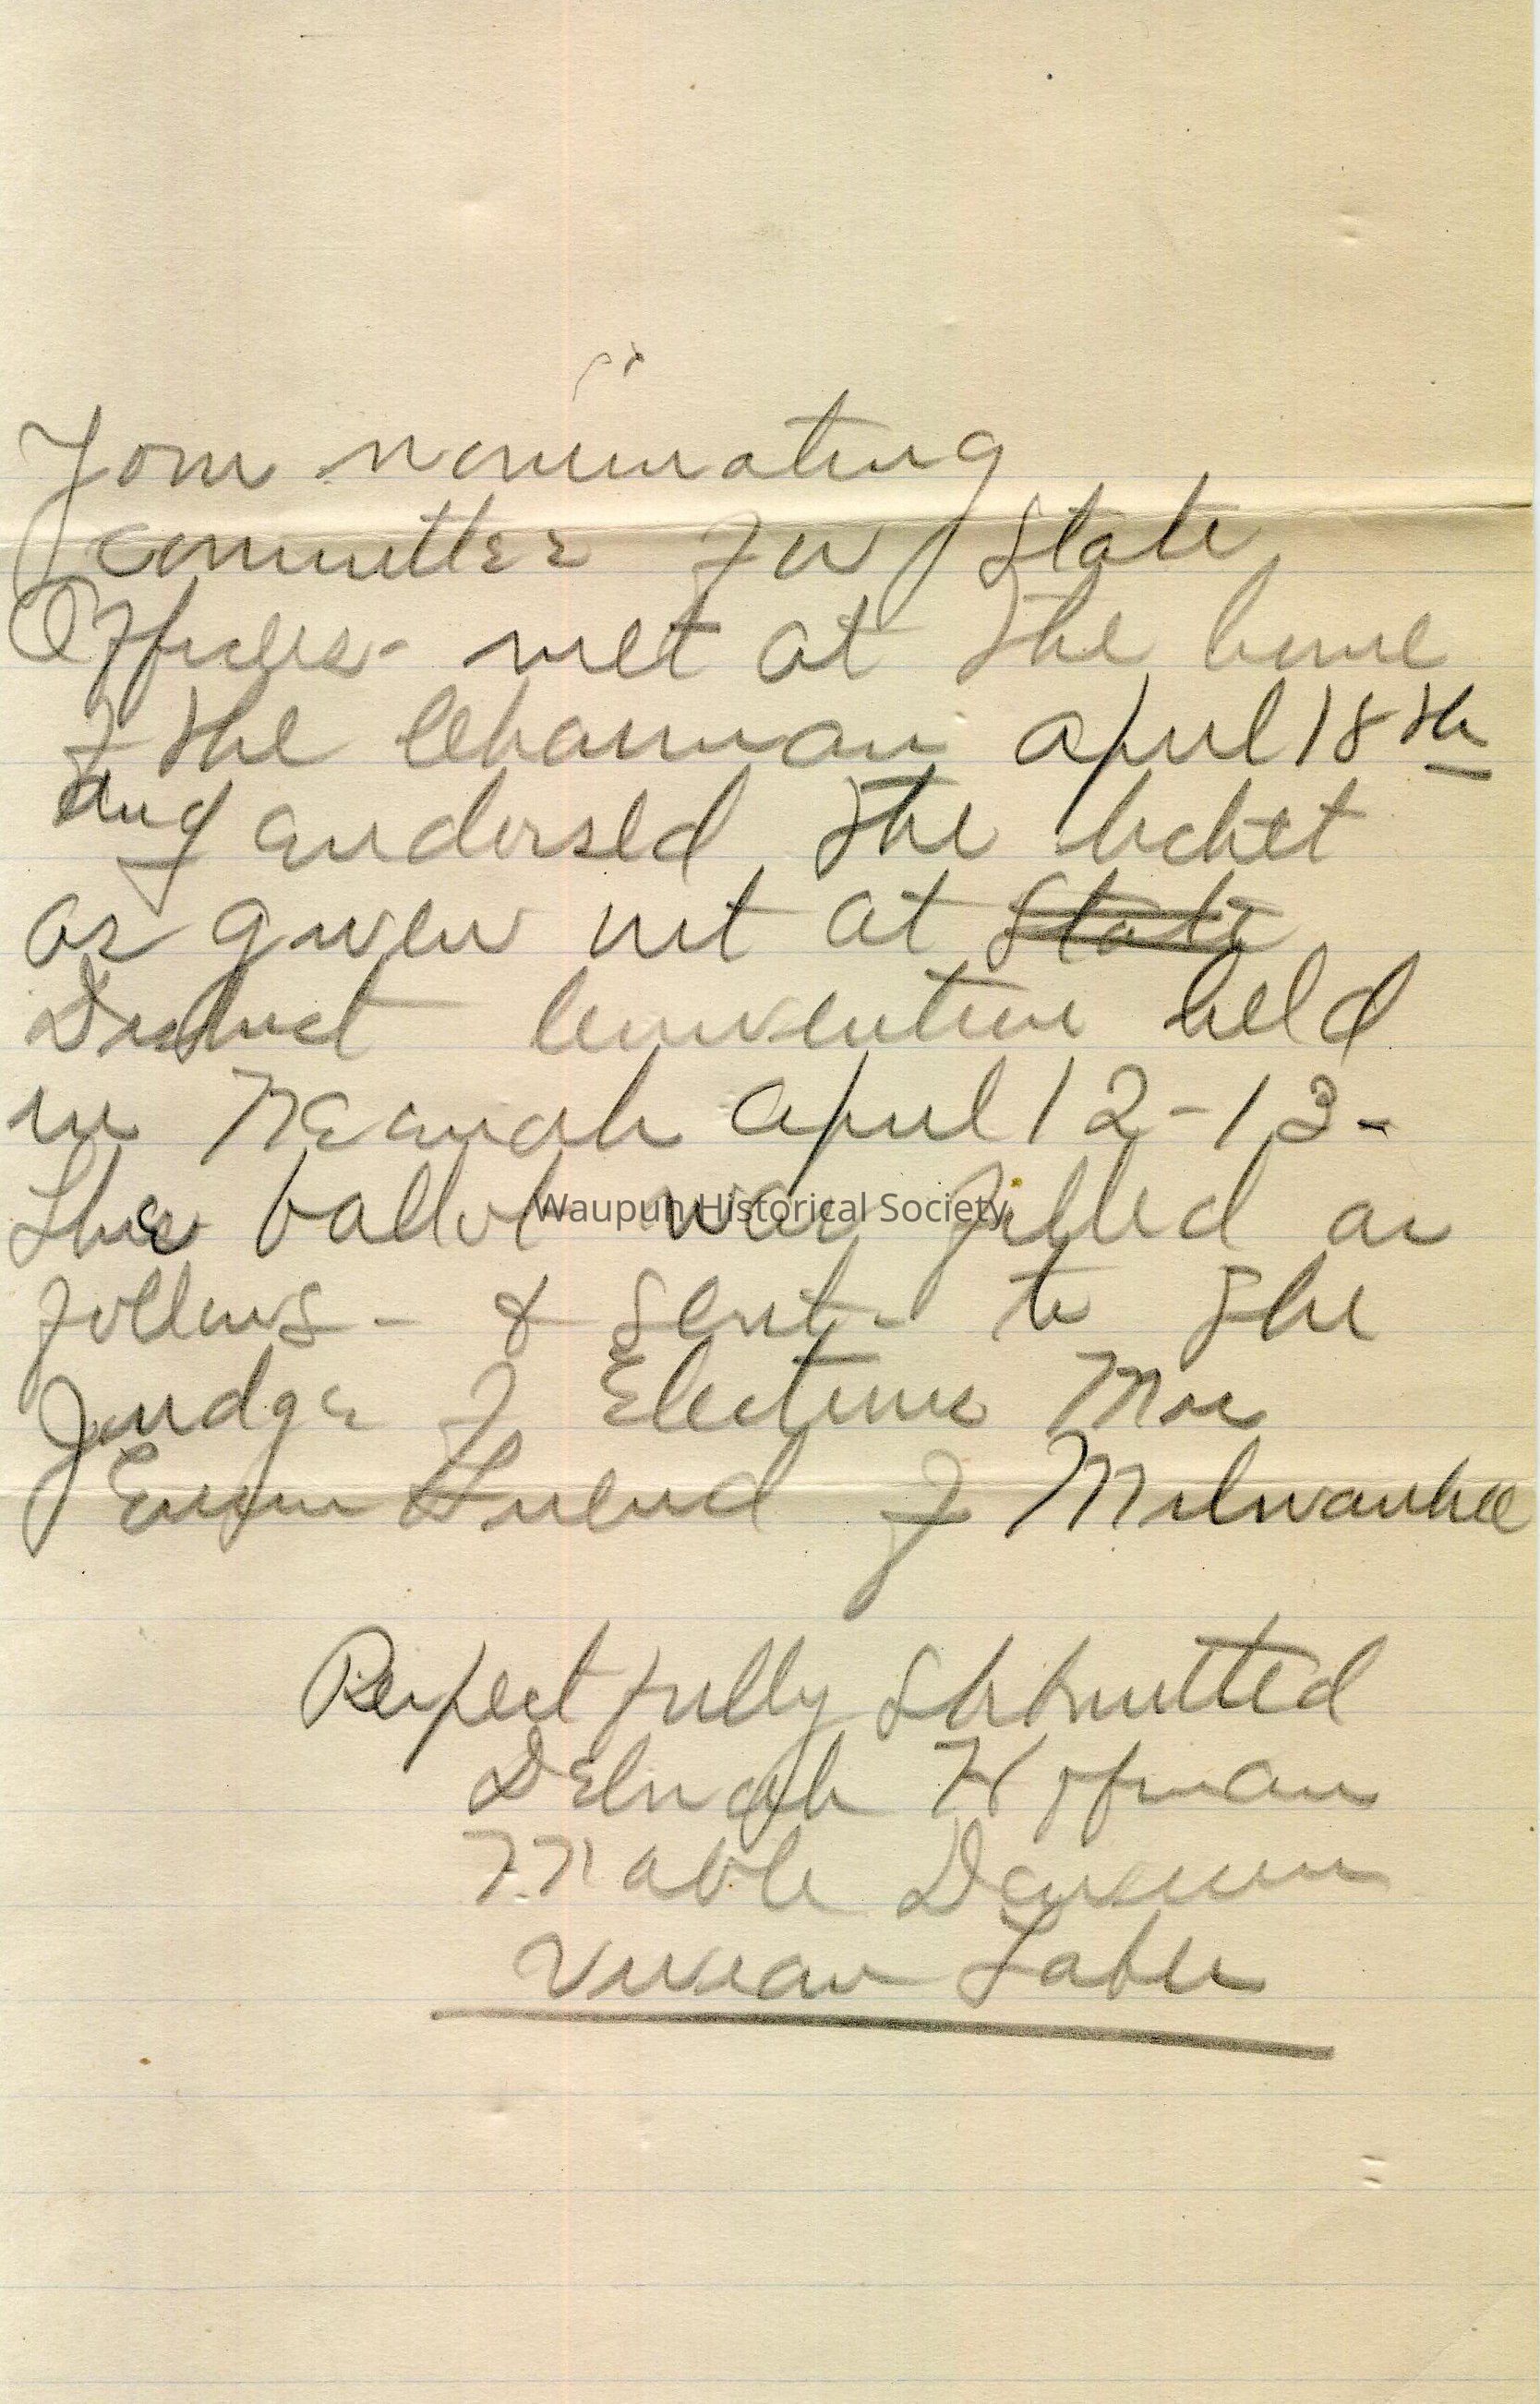 Your nominating
committee for State
Offices - met at the home
of the Chairman April 18th
and endorsed the ticket
as given out at State
District Convention held
in Neenah April 12-13-
The ballot was filled as
Waupun Historical Society
follows - & sent - to the
Judge of Elections Mrs
Friend of Milwaukee
Respectfully Submitted
Delnah Hofman
Mable Davison
Vivian Laber